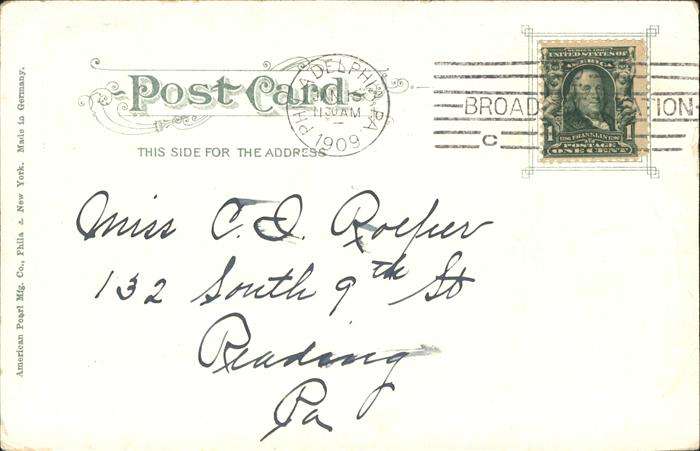 Post Card
THIS SIDE FOR THE ADDRESS
PHILADELPHIA, PA.
1130 AM
1909
BROAD STATION
C
SERIES 1902
UNITED STATES OF
AMERICA
1 FRANKLIN 1
POSTAGE
ONE CENT
Miss C. I. Roeper
132 South 9th St
Reading
Pa
American Pearl Mfg. Co., Phila & New York. Made in Germany.